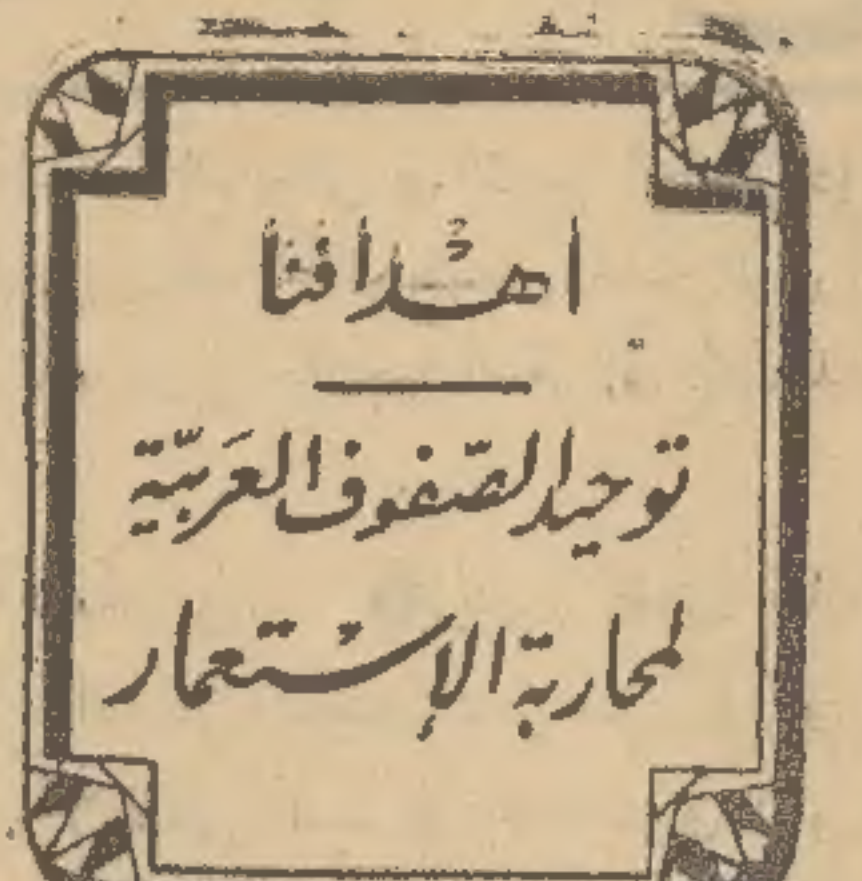 أهدافنا
توحيد الصّفوف العَربيّة
لمحاربة الإستعمار